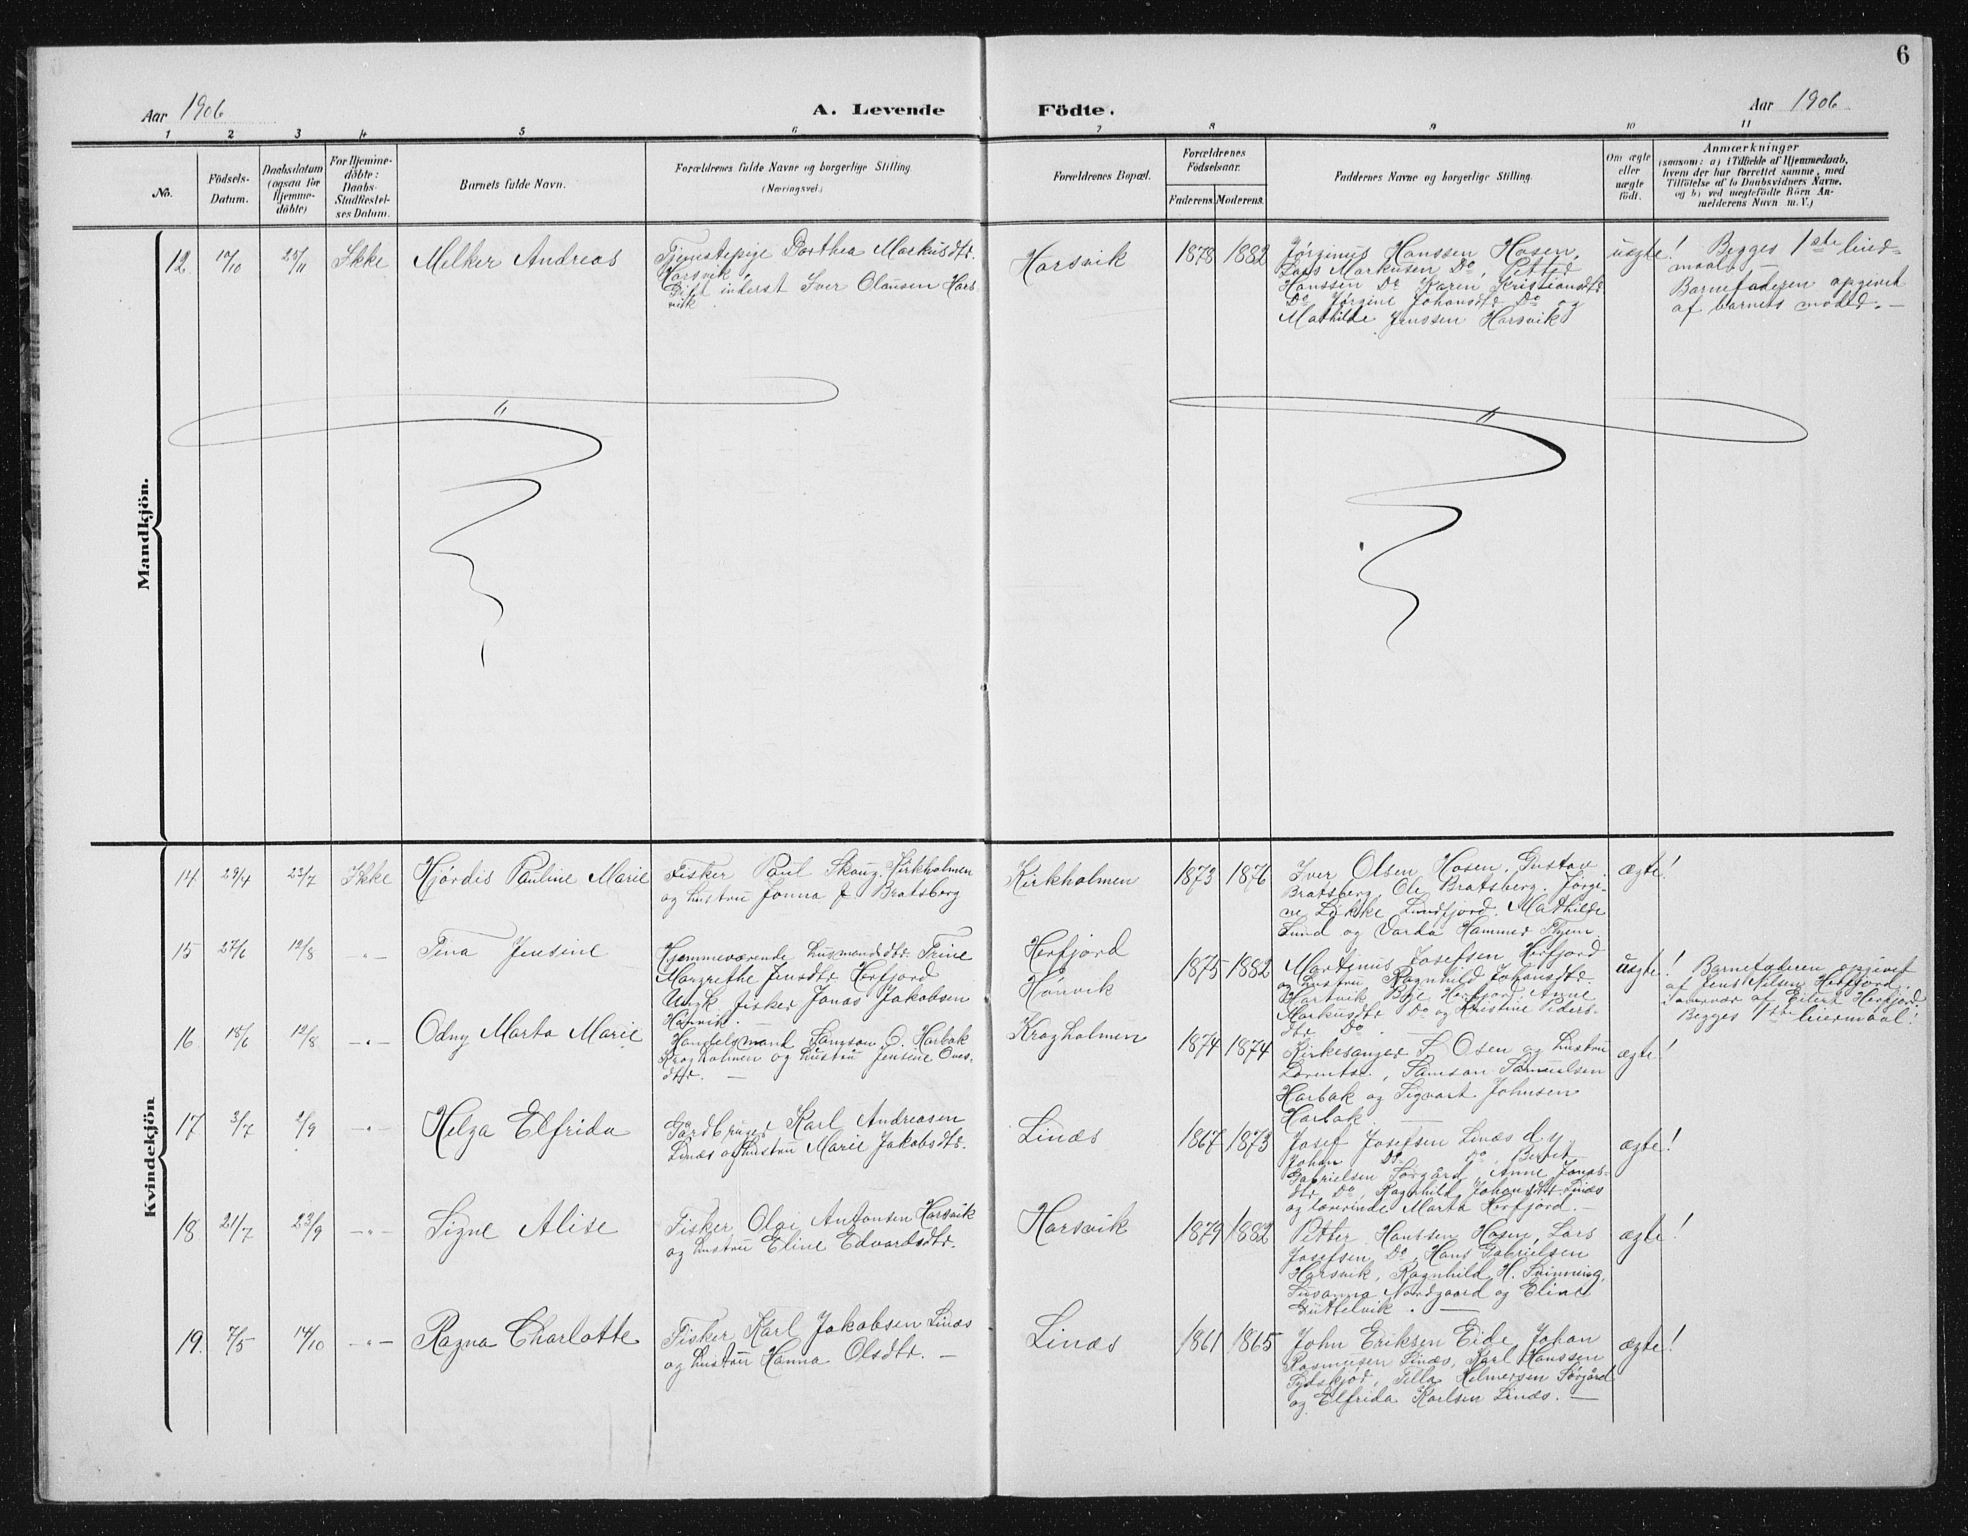 6
Aar 1906
A. Levende Födte.
Aar 1906
1 2 3 4 5 6 7 8 9 10 11
No.
Födsels-
Datum.
Daabsdatum
(ogsaa for
Hjemme-
döbte)
For Hjemme-
döbte:
Daabs-
Stadfæstel-
ses Datum.
Barnets fulde Navn.
Forældrenes fulde Navne og borgerlige Stilling
(Næringsvei.)
Forældrenes Bopæl.
Forældrenes
Födselsaar.
Faderens. Moderens.
Faddernes Navne og borgerlige Stilling.
Om ægte
eller
uægte
födt.
Anmærkninger
(saasom: a) i Tilfælde af Hjemmedaab,
hvem der har forrettet samme, med
Tilföielse af to Daabsvidners Navne,
og b) ved uægtefödte Börn An-
melderens Navn m. V.)
Mandkjön.
12 17/10 25/11 Ikke
Melker Andreas
Tjenestepige Dorthea Markusdtr.
Harsvik,
Gift inderst Iver Olausen Hars
vik
Harsvik
1878 1882
Jørginus Hanssen Hosen,
Lars Markusen Do, Petter
Hanssen Do Karen Kristiansdtr
Do Jørgine Johansdtr Do og
Mathilde Jenssen Harsvik
uægte!
Begges 1ste leier-
maal
Barnefaderen opgivet
af barnets moder. —
Kvindekjön
14 29/4 23/7 Ikke
Hjørdis Pauline Marie
Fisker Paul Skaug Kirkholmen
og hustru Jonna f Bratsberg
Kirkholmen
1873 1876
Iver Olsen Hosen, Gustav
Bratsberg, Ole Bratsberg. Jørgi-
ne Løkke Lundfjord. Mathilde
Lund og Varda Hammer
ægte!
15 27/6 12/8 -„-
Tina Jensine
Hjemmeværende husmandsdtr. Trine
Margrethe Jensdtr Herfjord
Ungk. fisker Jonas Jakobsen
Hønvik.
Herfjord
Hønvik
1875 1882
Martinus Josefsen Herfjord
og hustru Ragnhild Johansdtr.
Hartvik Bye Herfjord. Anne
Markusdtr Do og Kristine Peders-
dtr Do
uægte!
Barnefaderen opgivet
af Jens Nilsen Herfjord.
i nærvær af Eilert Herfjord
Begges 1ste leiermaal!
16 18/6 12/8 -„-
Odny Marta Marie
Handelsmand Samson D. Harbak
Kragholmen og hustru Jensine Oves-
dtr. —
Kragholmen
1874 1874
Kirkesanger Osen og hustru
Lorentse, Samson Samuelsen
Harbak og Sigvart Johnsen
Harbak —
ægte!
17 3/7 2/9 -„-
Helga Elfrida
Gårdbruger Karl Andreasen
Linæs og hustru Marie Jakobsdtr.
Linæs
1867 1873
Josef Josefsen Linæs d y,
Johan Do Do, Bernt
Gabrielsen Sørgård, Anne Jonas-
dtr Do, Ragnhild Johansdtr Linæs
og lærerinde Marta Herfjord. —
ægte!
18 21/7 23/9 -„-
Signe Alise
Fisker Olai Antonsen Harsvik
og hustru Eline Edvardsdtr.
Harsvik
1879 1882
Petter Hanssen Hosen, Lars
Josefsen Do, Hans Gabrielsen
Harsvik, Ragnhild H. Svinning,
Susanna Nordgaard og Eline
Sættelvik. —
ægte!
19. 7/5 14/10 -„-
Ragna Charlotte
Fisker Karl Jakobsen Linæs
og hustru Hanna Olsdtr. —
Linæs
1861 1865
John Eriksen Eide, Johan
Rasmusen Linæs, Karl Hanssen
Sydskjør, Tilla Helmersen Sørgård
og Elfrida Karlsen Linæs. —
ægte!